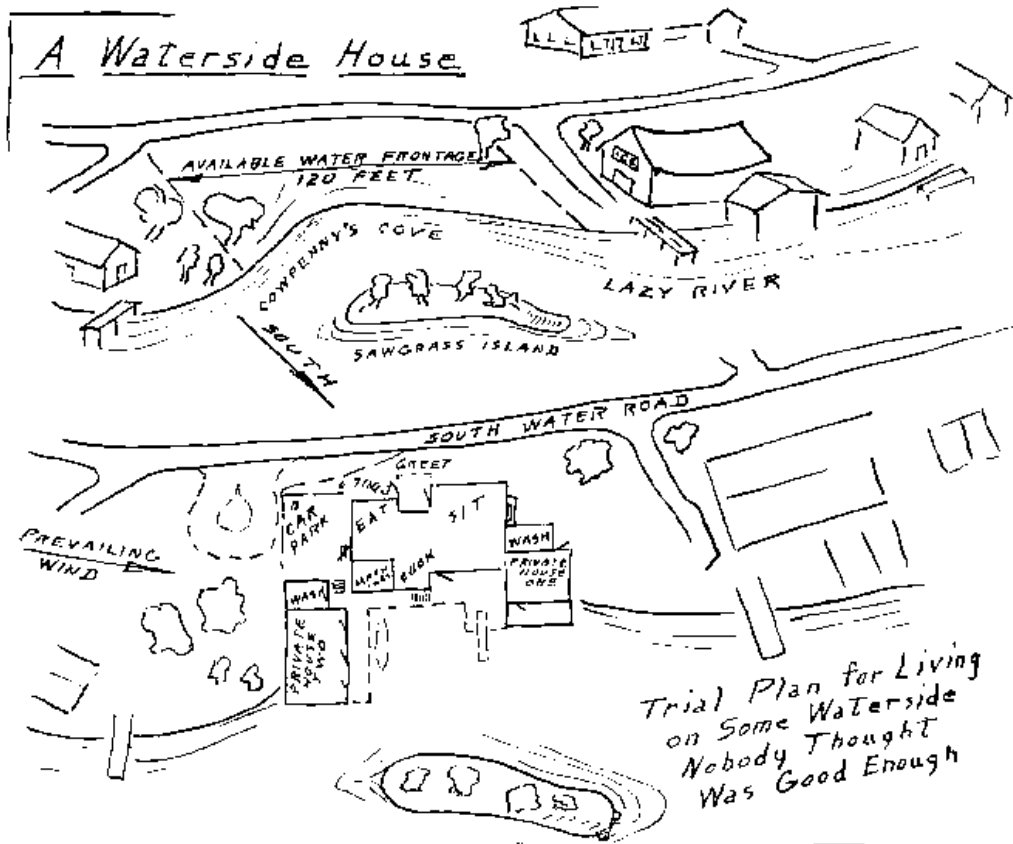 A Waterside House
AVAILABLE WATER FRONTAGE
120 FEET
COWPENNY'S COVE
LAZY RIVER
SAWGRASS ISLAND
SOUTH
SOUTH WATER ROAD
GREET
CAR
PARK
EAT
SIT
WASH
PRIVATE
HOUSE
ONE
PREVAILING
WIND
WASH
PRIVATE
HOUSE
TWO
Trial Plan for Living
on Some Waterside
Nobody Thought
Was Good Enough